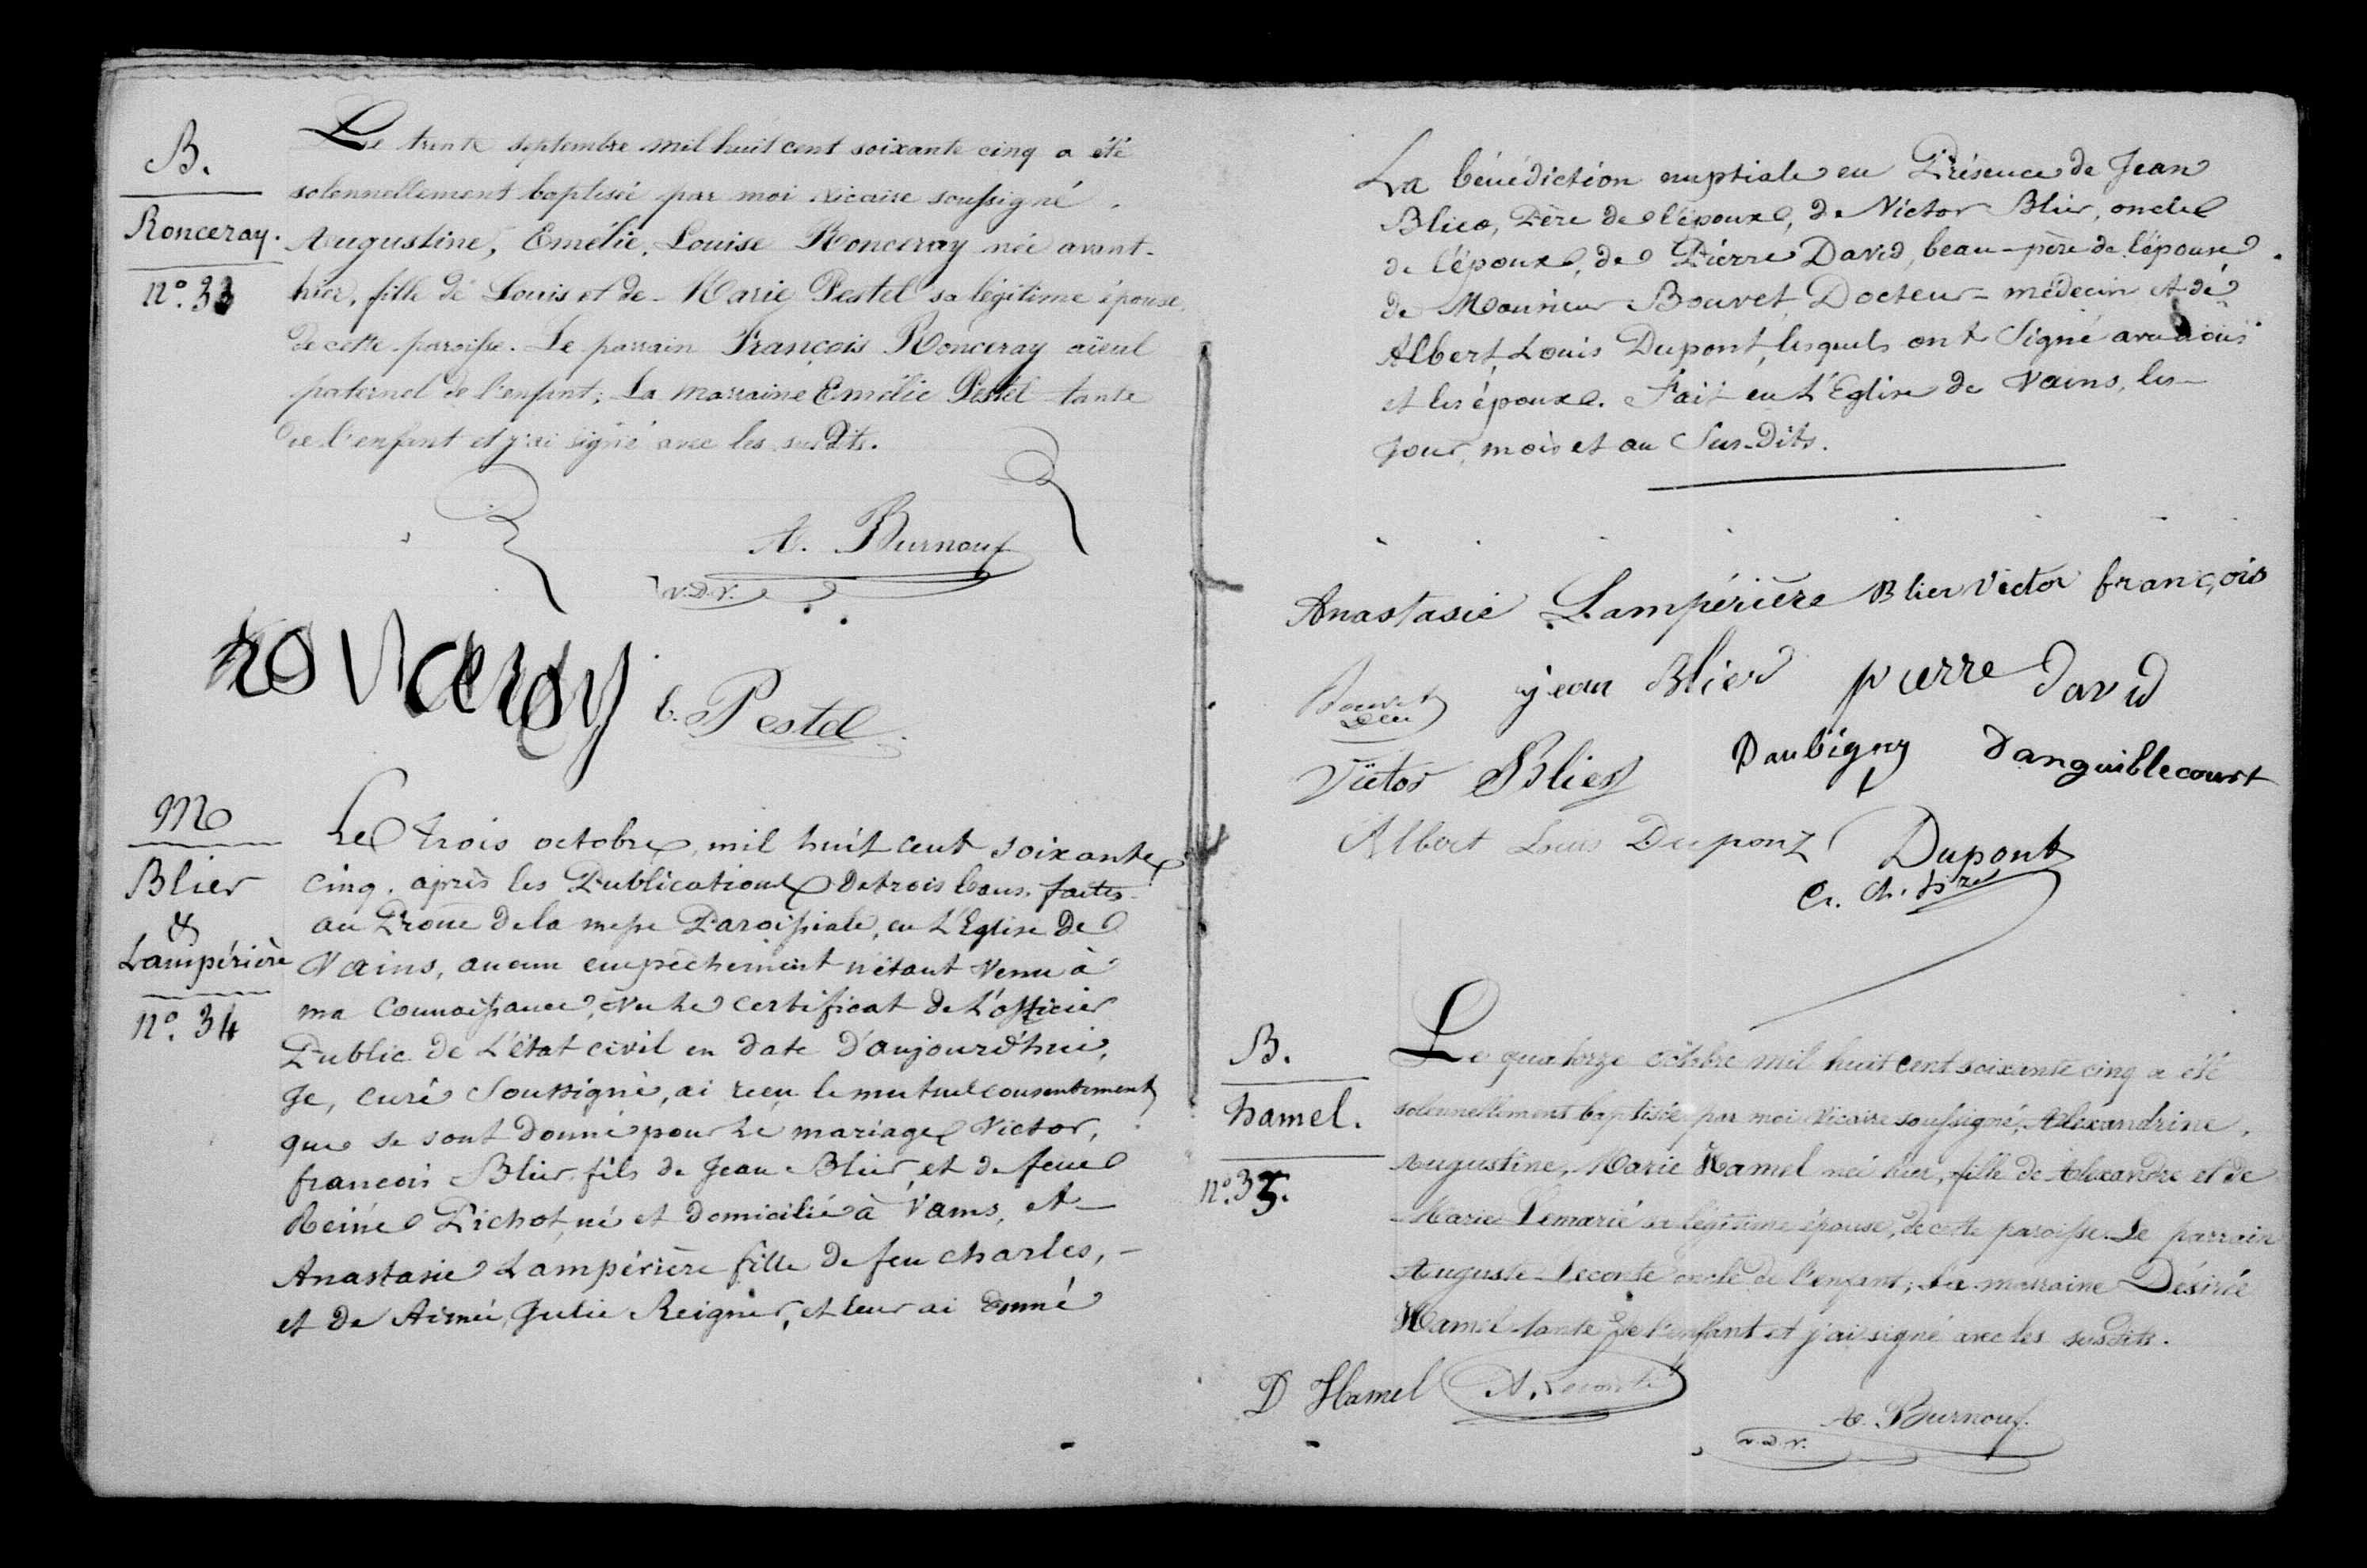 B.
Ronceray.
n°. 33
Le trente septembre mil huit cent soixante cinq a été
solennellement baptisée par moi vicaire soussigné.
Augustine, Emélie, Louise Ronceray née avant-
hier, fille de Louis et de Marie Pestel sa légitime épouse,
de cette paroisse. Le parrain François Ronceray aïeul
paternel de l'enfant; La marraine Emélie Pestel tante
de l'enfant et j'ai signé avec les susdits.
A. Burnouf
v.d.V.
ronceray
E. Pestel
M
Blier
&
Lampérière
n°. 34
Le trois octobre, mil huit cent soixante
cinq, après les Publications de trois bans faites
au Prône de la messe Paroissiale, en L'Eglise de
Vains, aucun empêchement n'étant venu à
ma connaissance, vu le certificat de L'officier
Public de L'état civil en date d'aujourd'hui,
Je, curé soussigné, ai reçu le mutuel consentement
que se sont donné pour le mariage Victor,
françois Blier fils de Jean Blier, et de feue
Reine Pichot, né et domicilié à Vains, et
Anastasie Lampérière fille de feu charles,
et de Aimée, Julie Reigner, et leur ai donné
La bénédiction nuptiale en Présence de Jean
Blier, Père de l'époux, de Victor Blier, oncle
de l'époux, de Pierre David, beau-père de l'épouse,
de Monsieur Bouvet Docteur-médecin et de
Albert, Louis Dupont, lesquels ont Signé avec nous
et les époux. Fait en L'Eglise de Vains, les
jour, mois et an Sus-Dits.
Anastasie Lampérière Blier Victor françois
Bouvet jean Blier pierre david
Victor Blier Daubigny Danguillecourt
Albert Louis Dupont Dupont
B.
hamel.
n°. 35.
Le quatorze octobre mil huit cent soixante cinq a été
solennellement baptisée par moi Vicaire soussigné, Alexandrine,
Augustine, Marie Hamel née hier, fille de Alexandre et de
Marie Lemarié sa légitime épouse, de cette paroisse. Le parrain
Auguste Leconte oncle de l'enfant; La marraine Désirée
Hamel tante de l'enfant et j'ai signé avec les susdits.
D Hamel A. Leconte
A. Burnouf
v.d.V.